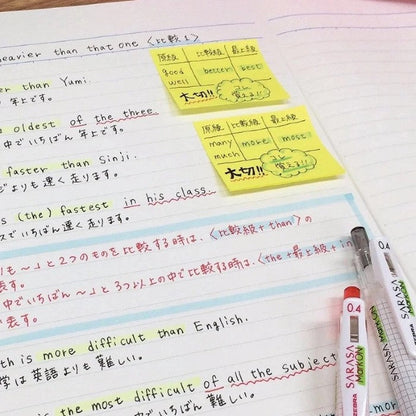 eavier than that one <比較1>
er than Yumi.
年上です。
oldest of the three
中でいちばん 年上です。
faster than Sinji.
よりも 速く 走ります。
s (the) fastest in his class
スでいちばん 速く 走ります。
原級 比較級 最上級
good
well better best
大切!! 覚える!!
原級 比較級 最上級
many
much more most
大切!! 覚える!!
りも〜」と2つのものを比較する時は、<比較級+than>の
表す。
中でいちばん〜」と3つ以上の中で比較する時は、<the+最上級+in
で表す。
th is more difficult than English.
学は英語よりも 難しい。
the most difficult of all the subject
でいちばん 難しい。
more
0.4
SARASA
MARK ON
0.4
SARASA
MARK ON
ZEBRA